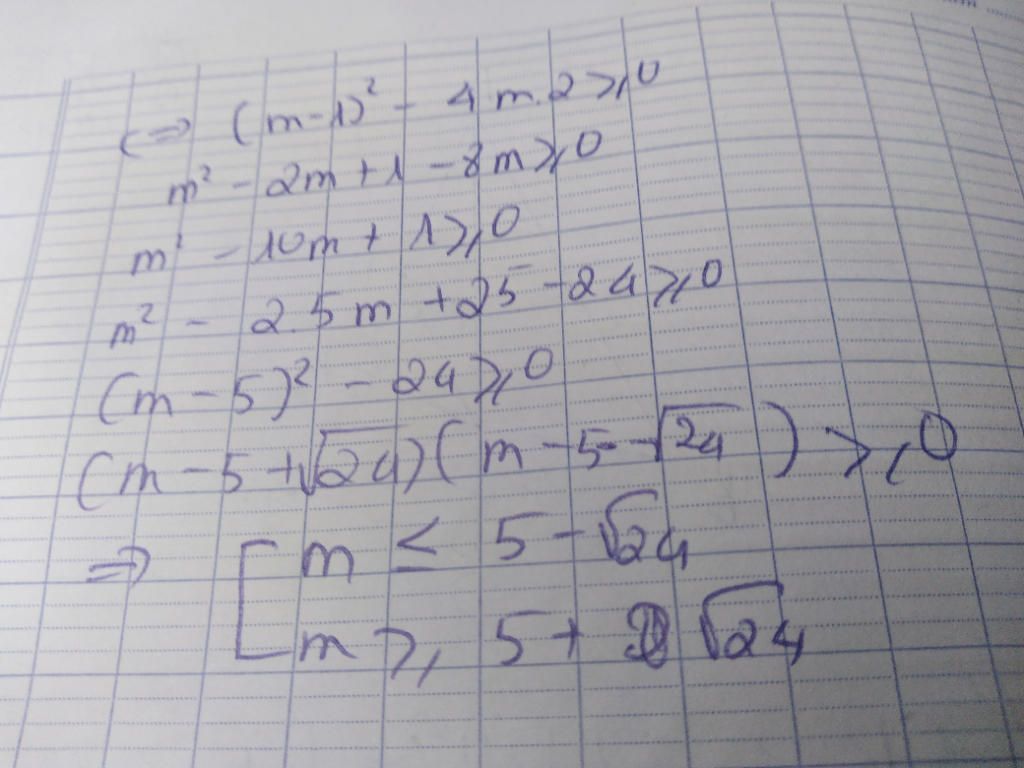 <=> (m-1)² - 4m.2 ≥ 0
m² - 2m + 1 - 8m ≥ 0
m² - 10m + 1 ≥ 0
m² - 2.5m + 25 - 24 ≥ 0
(m - 5)² - 24 ≥ 0
(m - 5 + √24)(m - 5 - √24) ≥ 0
=> [ m ≤ 5 - √24
m ≥ 5 + √24